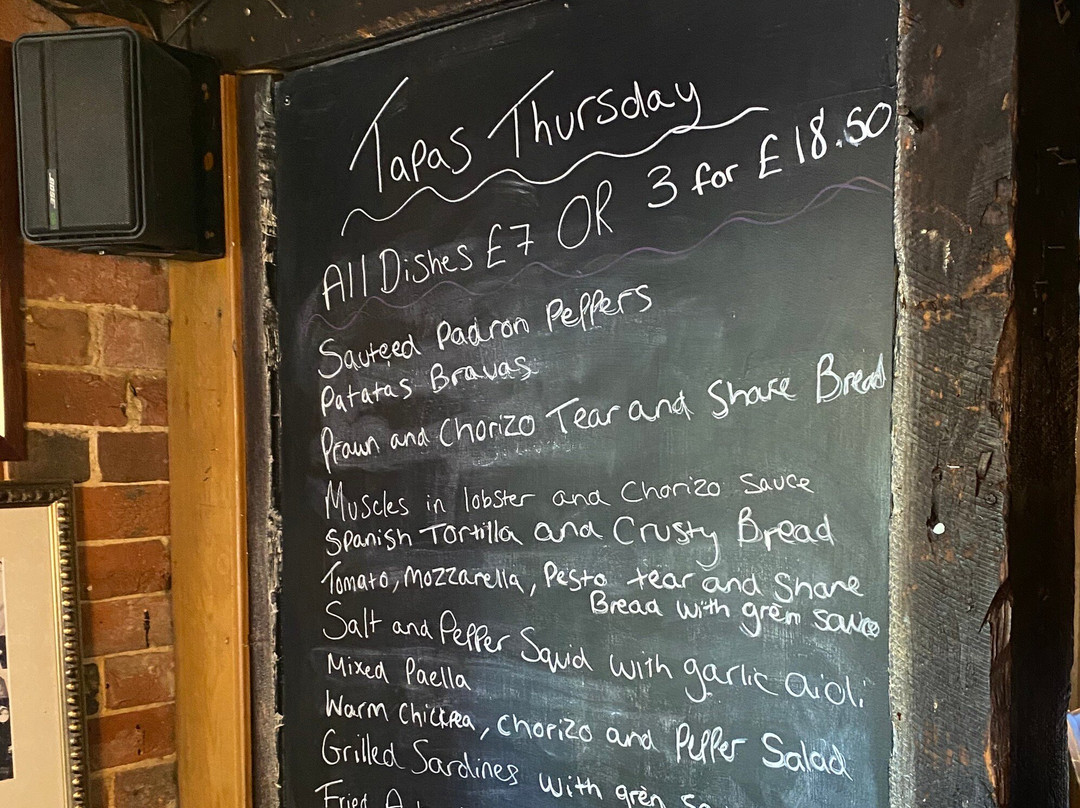 BOSE
Tapas Thursday
All Dishes £7 OR 3 for £18.50
Sauteed Padron Peppers
Patatas Bravas
Prawn and Chorizo Tear and Share Bread
Muscles in lobster and Chorizo Sauce
Spanish Tortilla and Crusty Bread
Tomato, Mozzarella, Pesto tear and Share
Bread with gren sauce
Salt and Pepper Squid with garlic aioli
Mixed Paella
Warm Chickpea, Chorizo and Pepper Salad
Grilled Sardines with gren
Fried